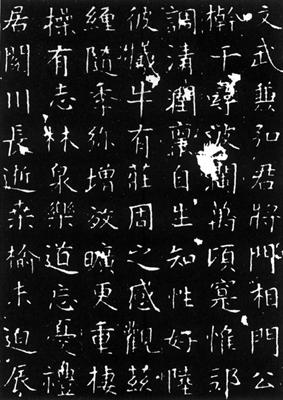 文武兼弘君將門相門公
榦千尋波瀾萬頃寔惟
調清潤稟自生知性好陸
彼犧牛有莊周之感觀茲
纏隨秊弥增放曠更重棲
操有志林泉樂道忘憂禮
居閱川長逝桑榆未迫辰